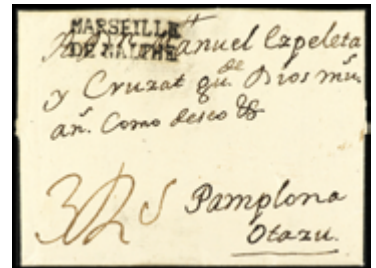 MARSEILLE
DE MALTHE
Manuel Ezpeleta
y Cruzat gu.de Dios m.s
an.s Como deseo &
Pamplona
Otazu.